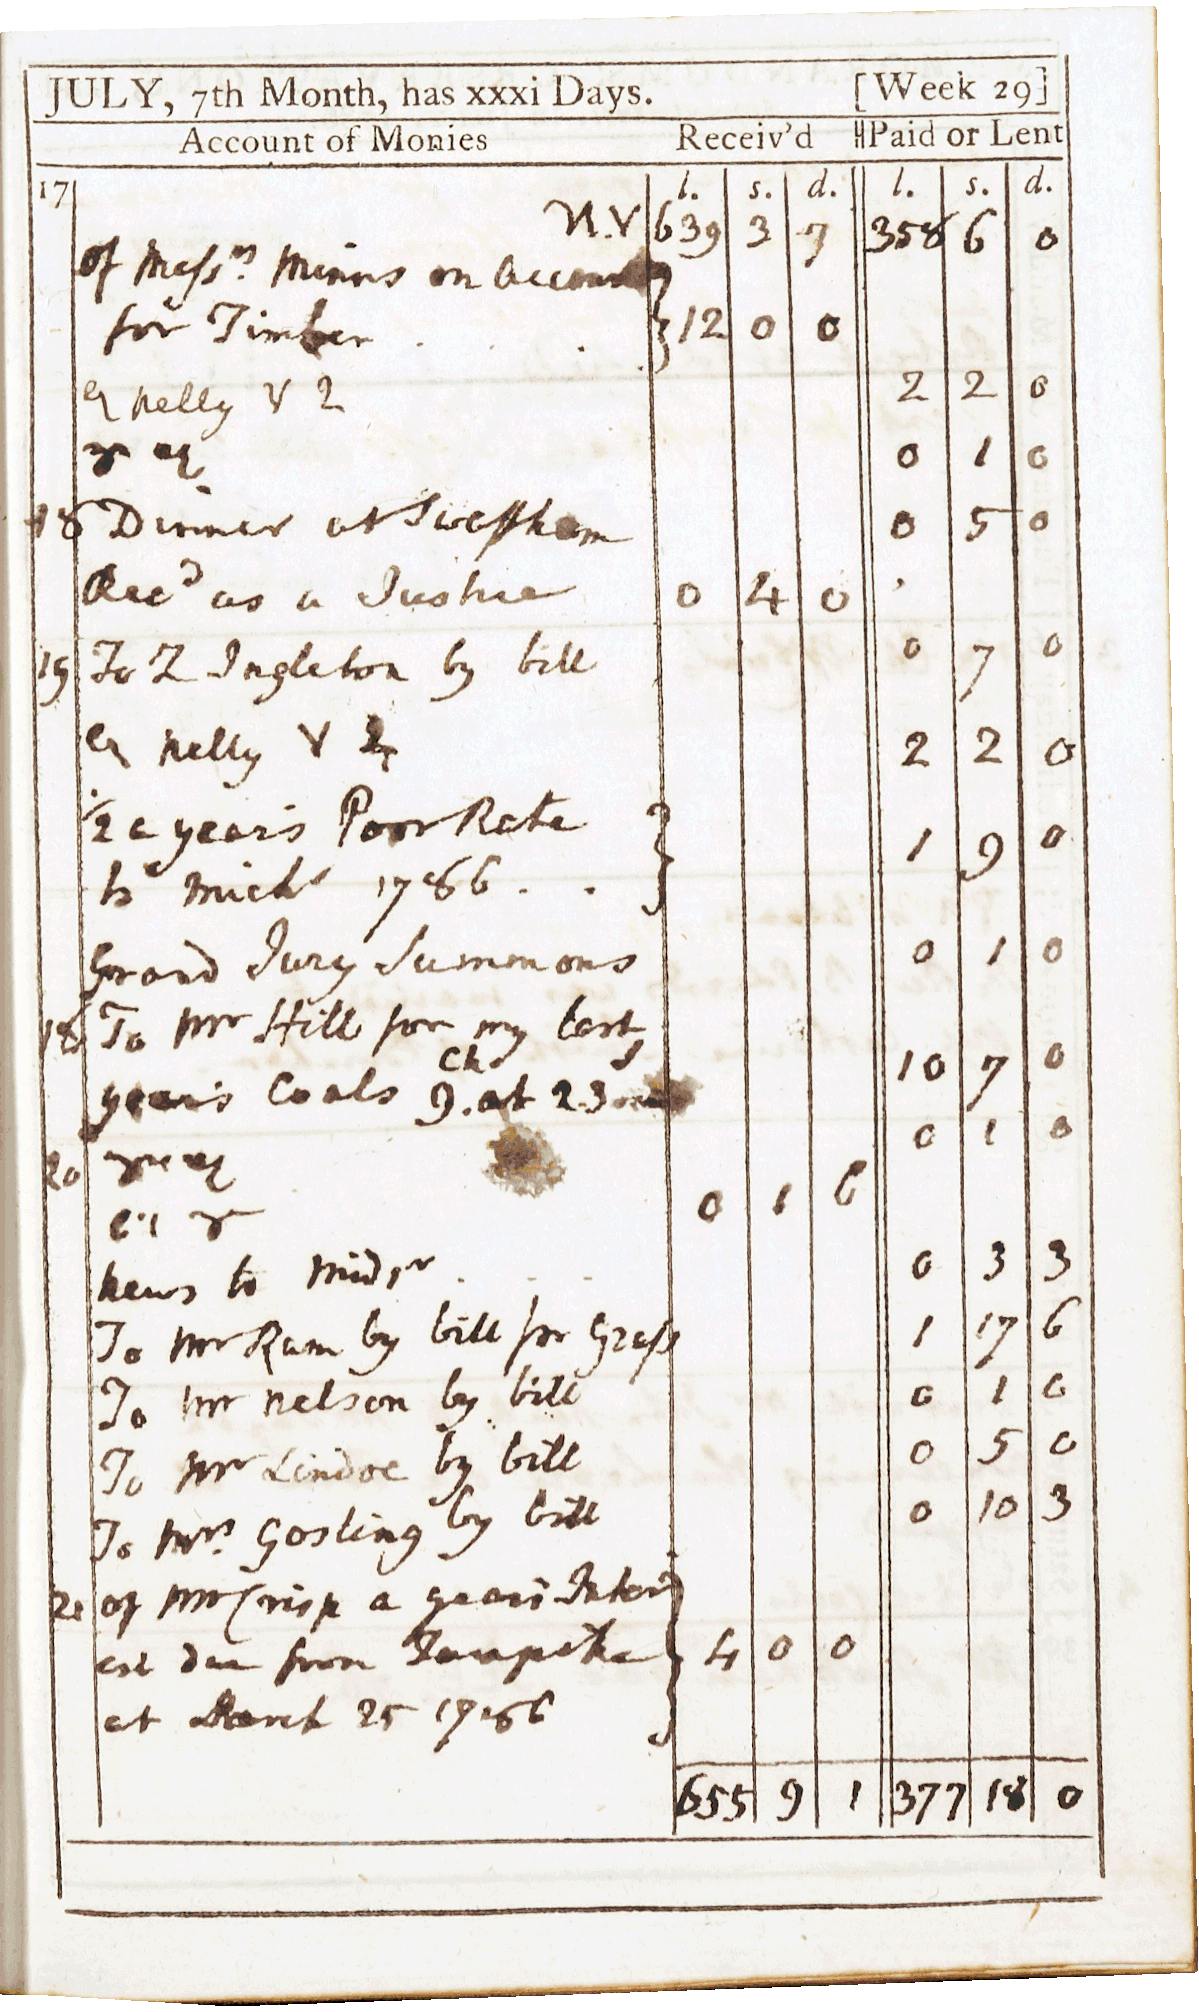 JULY, 7th Month, has xxxi Days. [Week 29]
Account of Monies Receiv'd Paid or Lent
17 l. s. d. l. s. d.
N.V 639 3 7 358 6 0
Of Messrs. Minns on Account
for Timber . . . } 12 0 0
nelly V 2 2 2 0
0 1 0
18 Dinner at Swaffham 0 5 0
Recd as a Justice 0 4 0
19 To Z Ingleton by bill 0 7 0
nelly V 2 2 0
1/2 a years Poor Rate }
to Michs 1786 . . } 1 9 0
Grand Jury Summons 0 1 0
18 To Mr Hill for my last
years Coals 9 Ch. at 23s 10 7 0
20 0 1 0
0 1 6
news to Midsr . . . 0 3 3
To Mr Ram by bill for Grass 1 17 6
To Mr nelson by bill 0 1 0
To Mr Lindoe by bill 0 5 0
To Mrs. Gosling by bill 0 10 3
21 of Mr Crisp a years Inter }
est due from Turnpike } 4 0 0
at March 25 1786 }
655 9 1 377 18 0